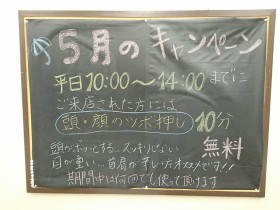 5月のキャンペーン
平日10:00〜14:00までに
ご来店された方には
頭・顔のツボ押し 10分
無料
頭がボーッとする…スッキリしない
目が重い…首肩が辛い方オススメです!!
期間中は何回でも使って頂けます